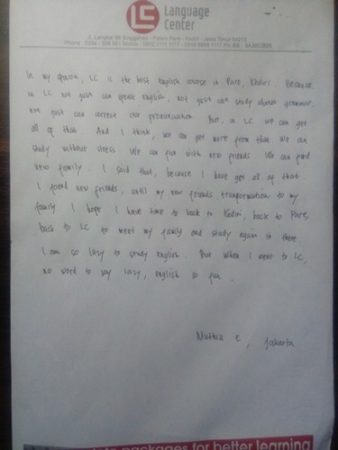 LC
Language
Center
In my opinion, LC is the best english course in Pare, Kediri. Because
in LC not just can speak english, not just can study about grammar,
not just can correct our pronunciation. But, in LC we can get
all of that. And I think, we can get more from that. We can
study without stress. We can fun with new friends. We can find
new family. I said that, because I have get all of that.
I found new friends, until my new friends transformation to my
family. I hope I have time to back to Kediri, back to Pare,
back to LC to meet my family and study again in there.
I am so lazy to study english. But when I went to LC,
no word to say lazy, english is fun.
Jakarta
packages for better learning